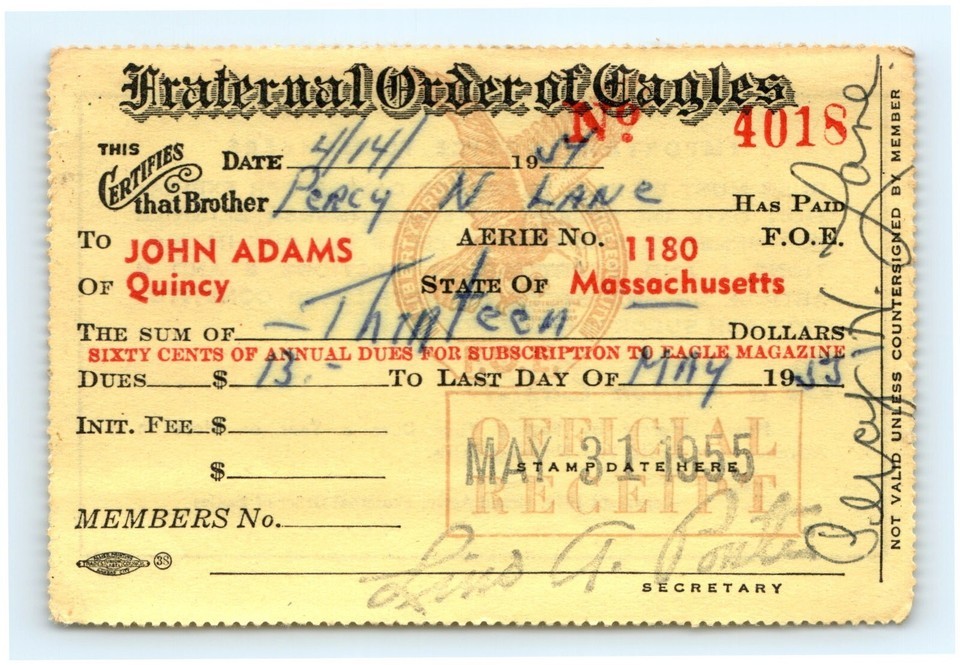 Fraternal Order of Eagles
Nº 4018
THIS CERTIFIES
DATE 4/14/ 1954
that Brother Percy N Lane HAS PAID
TO JOHN ADAMS AERIE No. 1180 F.O.E.
OF Quincy STATE OF Massachusetts
THE SUM OF — Thirteen — DOLLARS
SIXTY CENTS OF ANNUAL DUES FOR SUBSCRIPTION TO EAGLE MAGAZINE
DUES $ 13.- TO LAST DAY OF MAY 1955
INIT. FEE $
$
OFFICIAL RECEIPT
STAMP DATE HERE
MAY 31 1955
MEMBERS No.
38
SECRETARY
NOT VALID UNLESS COUNTERSIGNED BY MEMBER
Percy N. Lane